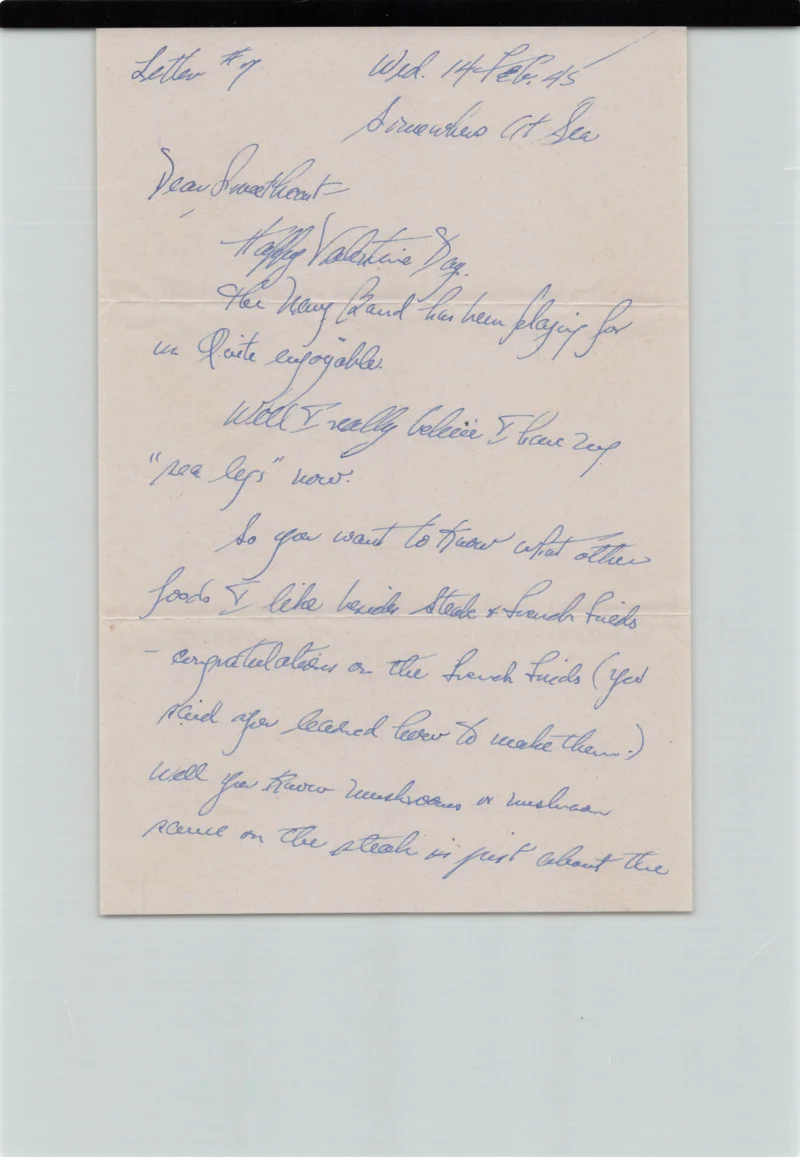 Letter #7 Wed. 14 Feb. 45
Somewhere At Sea
Dear Sweetheart—
Happy Valentine Day.
The Navy Band has been playing for
us Quite enjoyable.
Well I really believe I have my
"sea legs" now.
So you want to know what other
foods I like beside steak & French Frieds
– congratulations on the French Frieds (you
said you learned how to make them.)
Well you know mushrooms or mushroom
sauce on the steak is just about the